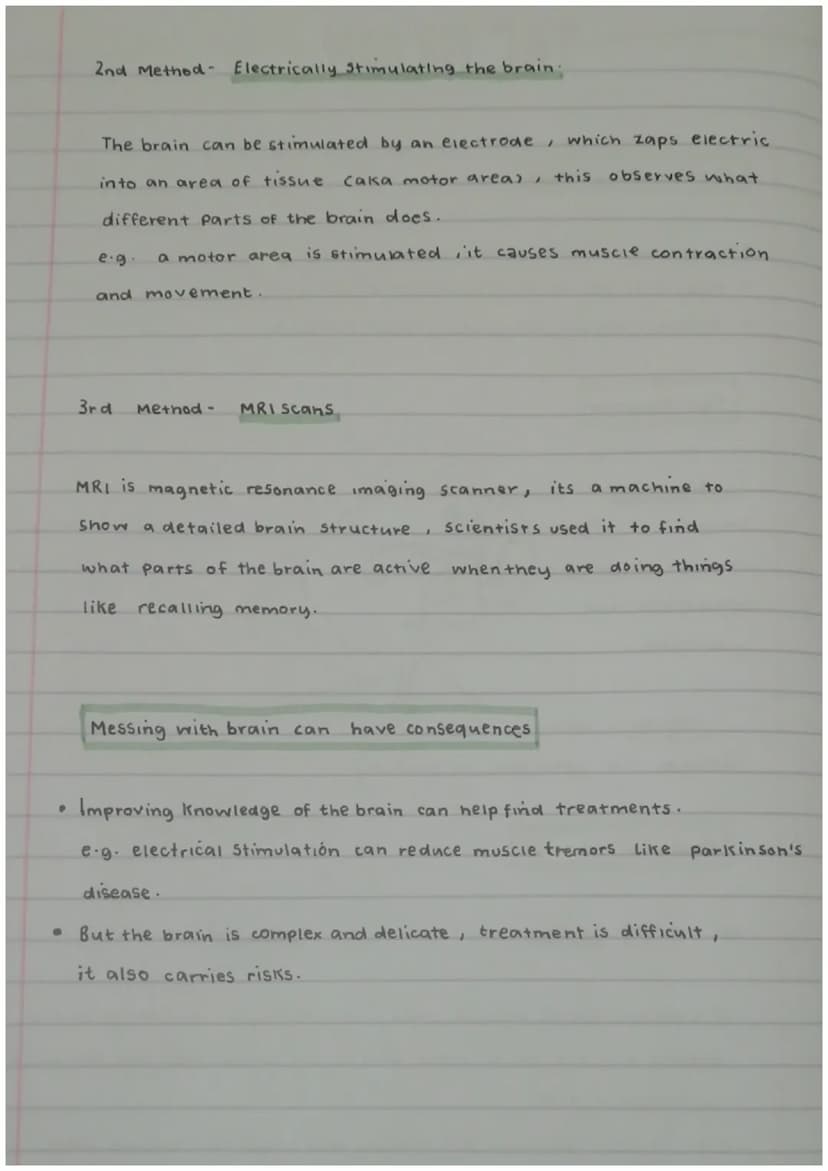 2nd Method - Electrically stimulating the brain.
The brain can be stimulated by an electrode, which zaps electric
into an area of tissue (aka motor area), this observes what
different parts of the brain does.
e.g. a motor area is stimulated, it causes muscle contraction
and movement.
3rd Method - MRI scans
MRI is magnetic resonance imaging scanner, its a machine to
show a detailed brain structure, scientists used it to find
what parts of the brain are active when they are doing things
like recalling memory.
Messing with brain can have consequences
• Improving knowledge of the brain can help find treatments.
e.g. electrical stimulation can reduce muscle tremors like parkinson's
disease.
• But the brain is complex and delicate, treatment is difficult,
it also carries risks.